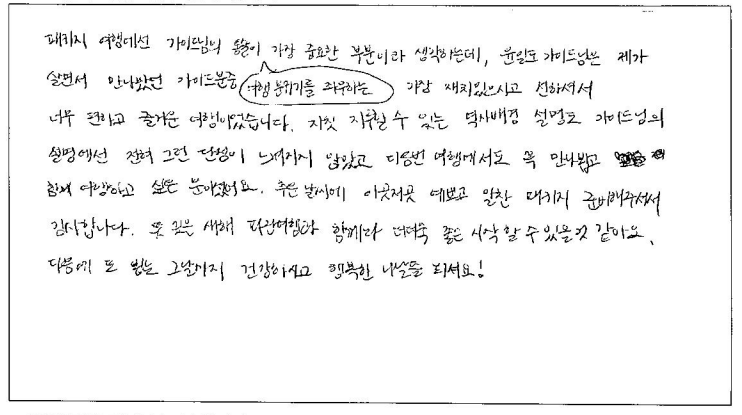 패키지 여행에선 가이드님의 가장 중요한 부분이라 생각하는데, 윤일도 가이드님은 제가
살면서 만나봤던 가이드분중 여행 분위기를 좌우하는 가장 재치있으시고 선하셔서
너무 편하고 즐거운 여행이었습니다. 자칫 지루할 수 있는 역사배경 설명도 가이드님의
설명에선 전혀 그런 느껴지지 않았고 다음번 여행에서도 꼭 만나뵙고
함께 여행하고 싶은 분이셨어요. 추운 날씨에 이곳저곳 예쁘고 알찬 패키지 준비해주셔서
감사합니다. 뜻 깊은 새해 함께라 더더욱 좋은 시작 할 수 있을것 같아요.
다음에 또 뵙는 그날까지 건강하시고 행복한 나날들 되세요!